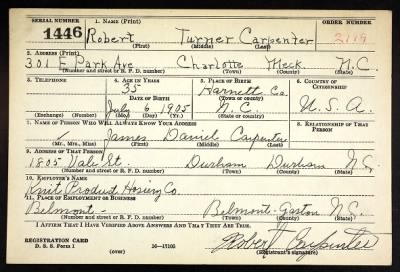 SERIAL NUMBER 1. NAME (Print) ORDER NUMBER
1446 Robert Turner Carpenter
(First) (Middle) (Last)
2. ADDRESS (Print)
301 E Park Ave Charlotte Meck. N.C.
(Number and street or R. F. D. number) (Town) (County) (State)
3. TELEPHONE 4. AGE IN YEARS 5. PLACE OF BIRTH 6. COUNTRY OF CITIZENSHIP
35 Harnett Co.
DATE OF BIRTH (Town or county)
July 6 1905 N. C. U. S. A.
(Exchange) (Number) (Mo.) (Day) (Yr.) (State or country)
7. NAME OF PERSON WHO WILL ALWAYS KNOW YOUR ADDRESS 8. RELATIONSHIP OF THAT PERSON
James Daniel Carpenter
(Mr., Mrs., Miss) (First) (Middle) (Last)
9. ADDRESS OF THAT PERSON
1805 Vale St. Durham Durham N.C.
(Number and street or R. F. D. number) (Town) (County) (State)
10. EMPLOYER'S NAME
Knit Product Hosiery Co.
11. PLACE OF EMPLOYMENT OR BUSINESS
Belmont - Belmont - Gaston N.C.
(Number and street or R. F. D. number) (Town) (County) (State)
I AFFIRM THAT I HAVE VERIFIED ABOVE ANSWERS AND THAT THEY ARE TRUE.
REGISTRATION CARD
D. S. S. Form 1 (over) 16-17105 Robert Carpenter
(Registrant's signature)